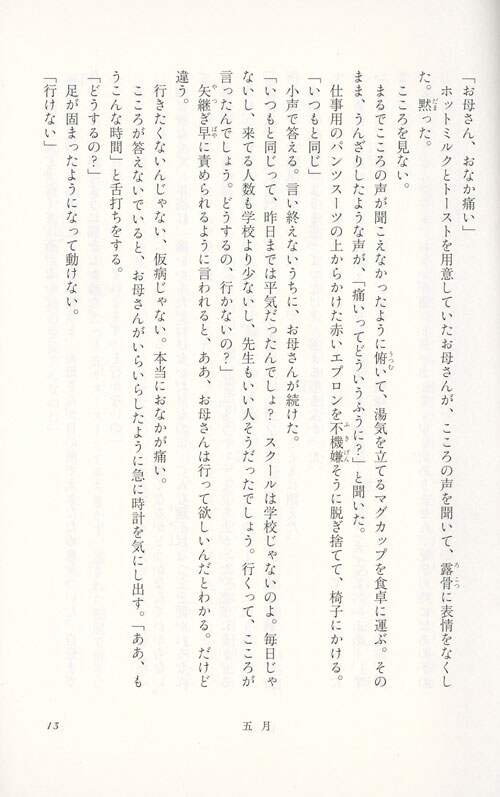 「お母さん、おなか痛い」
ホットミルクとトーストを用意していたお母さんが、こころの声を聞いて、露骨に表情をなくし
た。黙った。
こころを見ない。
まるでこころの声が聞こえなかったように俯いて、湯気を立てるマグカップを食卓に運ぶ。その
まま、うんざりしたような声が、「痛いってどういうふうに?」と聞いた。
仕事用のパンツスーツの上からかけた赤いエプロンを不機嫌そうに脱ぎ捨てて、椅子にかける。
「いつもと同じ」
小声で答える。言い終えないうちに、お母さんが続けた。
「いつもと同じって、昨日までは平気だったんでしょ? スクールは学校じゃないのよ。毎日じゃ
ないし、来てる人数も学校より少ないし、先生もいい人そうだったでしょう。行くって、こころが
言ったんでしょう。どうするの、行かないの?」
矢継ぎ早に責められるように言われると、ああ、お母さんは行って欲しいんだとわかる。だけど
違う。
行きたくないんじゃない、仮病じゃない。本当におなかが痛い。
こころが答えないでいると、お母さんがいらいらしたように急に時計を気にし出す。「ああ、も
うこんな時間」と舌打ちをする。
「どうするの?」
足が固まったようになって動けない。
「行けない」
五月
13